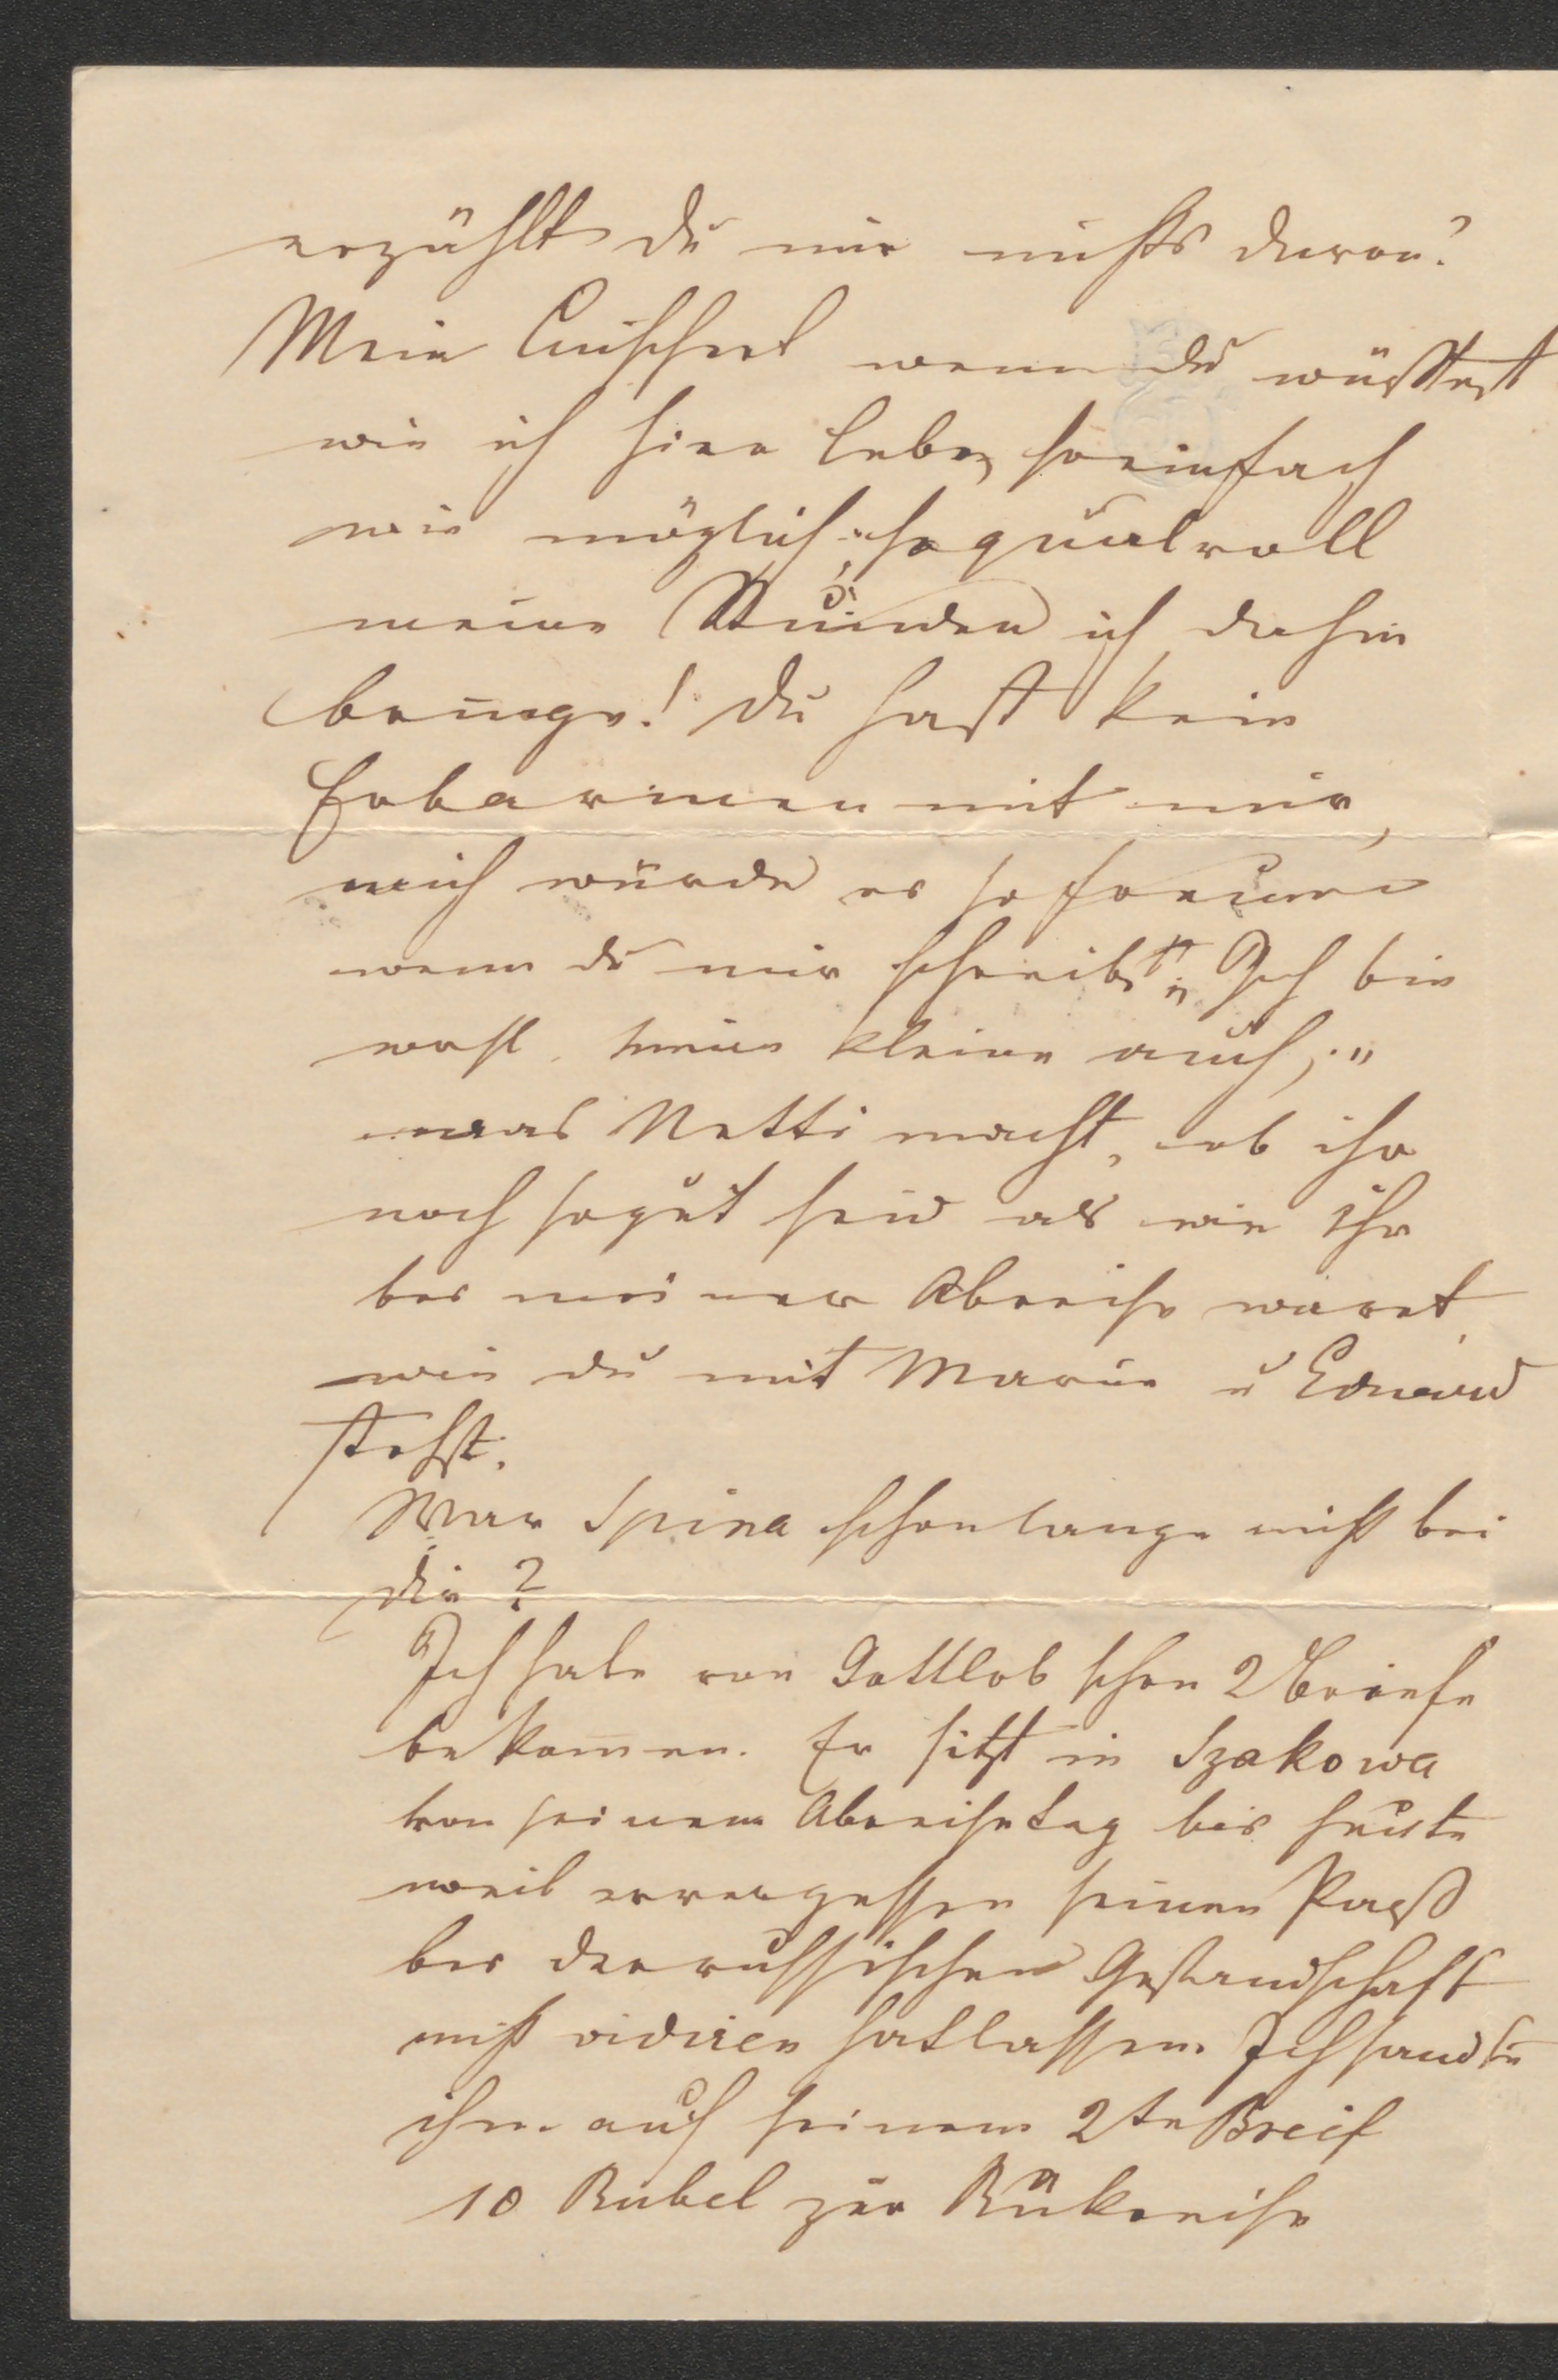 erzählst du mir nichts davon?
Mein wenn du wüßtest
wie ich hier lebe, so einfach
wie möglich, so qualvoll
meine Stunden ich dahin
bringe! Du hast kein
Erbarmen mit mir,
mich würde es so freuen
wenn du mir schreibst „Ich bin
wohl, meine Kleine auch,"
was Netti macht, ob ihr
noch so gut seid als wie Ihr
bei meiner Abreise waret,
wie du mit Marie u Eduard
stehst.
War Spina schon lange nicht bei
dir?
Ich habe von Gottlob schon 2 Briefe
bekom̄en. Er sitzt in Szakowa
von seinem Abreisetag bis heute
weil er vergessen seinen Paß
bei der russischen Gesandschaft
nicht vidiren hat lassen. Ich sandte
ihm auf seinem 2te Breif
10 Rubel zur Rükreise